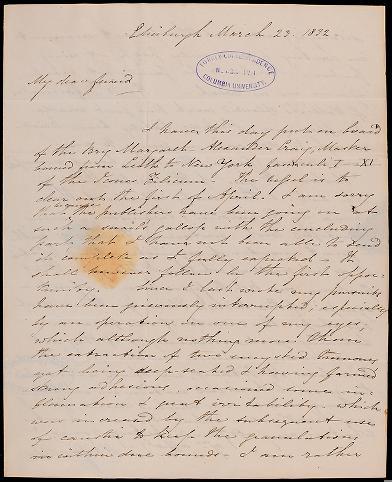 Edinburgh March 23. 1832
TORREY CORRESPONDENCE
COLUMBIA UNIVERSITY.
My dear friend
I have this day put on board
of the Brig Margareth Alexander Craig, Master
bound from Leith to New York fasciculi I - XI
of the Icones Filicum. The vessel is to
clear out the first of April. I am sorry
that the publishers have been going on at
such a snail's gallop with the concluding
part that I have not been able to send
it complete as I fully expected - It
shall however follow by the first oppor
tunity. Since I last wrote my pursuits
have been grievously interrupted, especially
by an operation in one of my eyes,
which although nothing more than
the extraction of two encysted tumours,
yet being deep-seated & having formed
strong adhesions, occasioned some in-
flammation & great irritability, which
were increased by the subsequent use
of caustic to keep the granulations
in within due bounds. I am rather